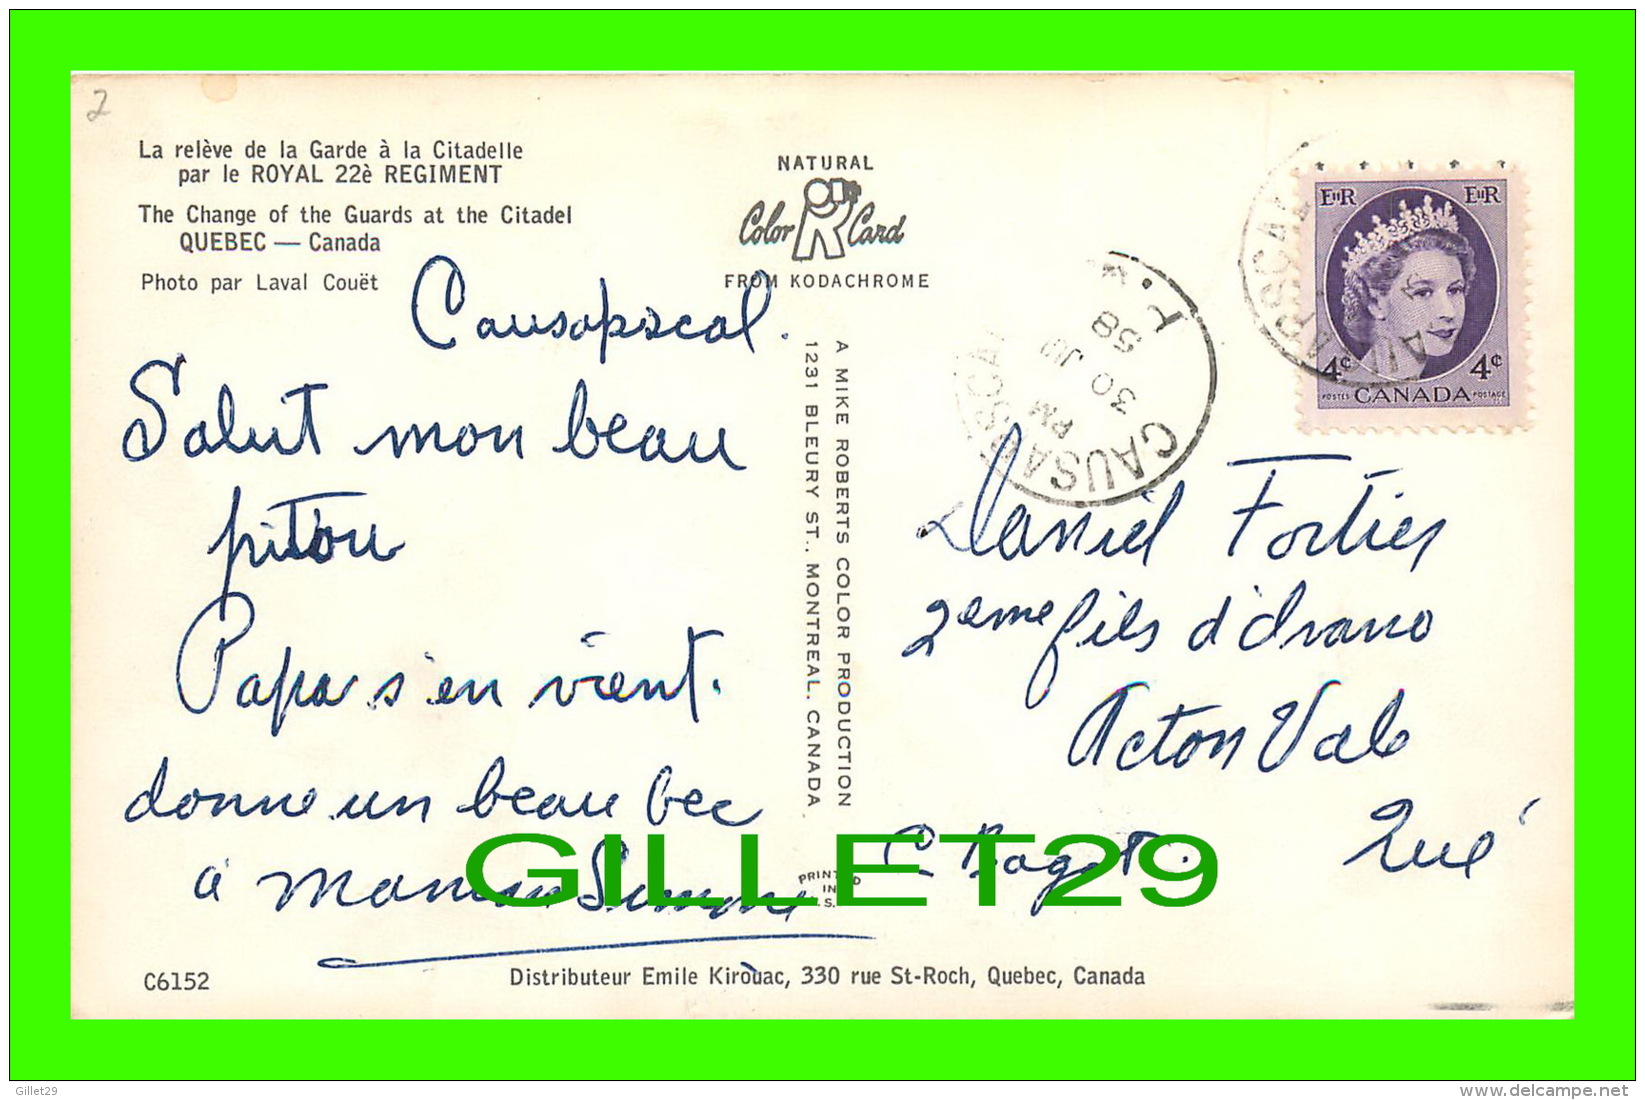 2
La relève de la Garde à la Citadelle
par le ROYAL 22è REGIMENT
The Change of the Guards at the Citadel
QUEBEC — Canada
Photo par Laval Couët
NATURAL
Color Card
FROM KODACHROME
Causapscal.
Salut mon beau
pitou
Papa s'en vient.
donne un beau bec
à maman
A MIKE ROBERTS COLOR PRODUCTION
1231 BLEURY ST., MONTREAL, CANADA
PRINTED
IN
.S.
CAUSAPSCAL
PM
30 JU
58
EIIR EIIR
4¢ 4¢
POSTES CANADA POSTAGE
Daniel Fortier
2eme fils d
Acton Vale
C Bagot. Qué
GILLET29
C6152
Distributeur Emile Kirouac, 330 rue St-Roch, Quebec, Canada
Gillet29
www.delcampe.net